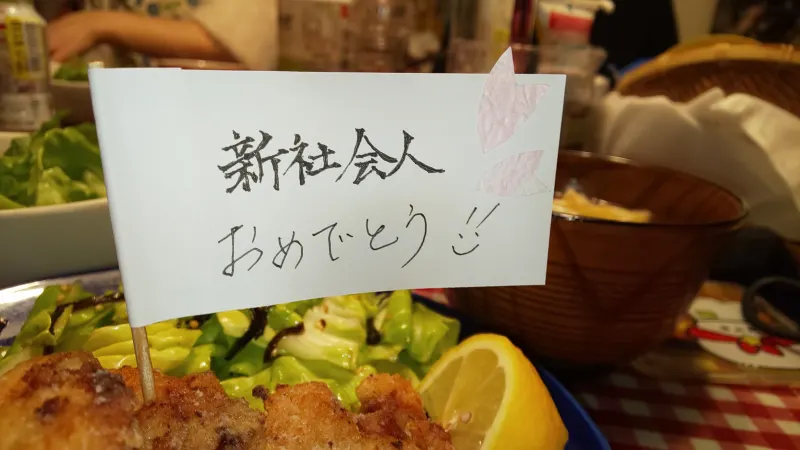 新社会人
おめでとう!!